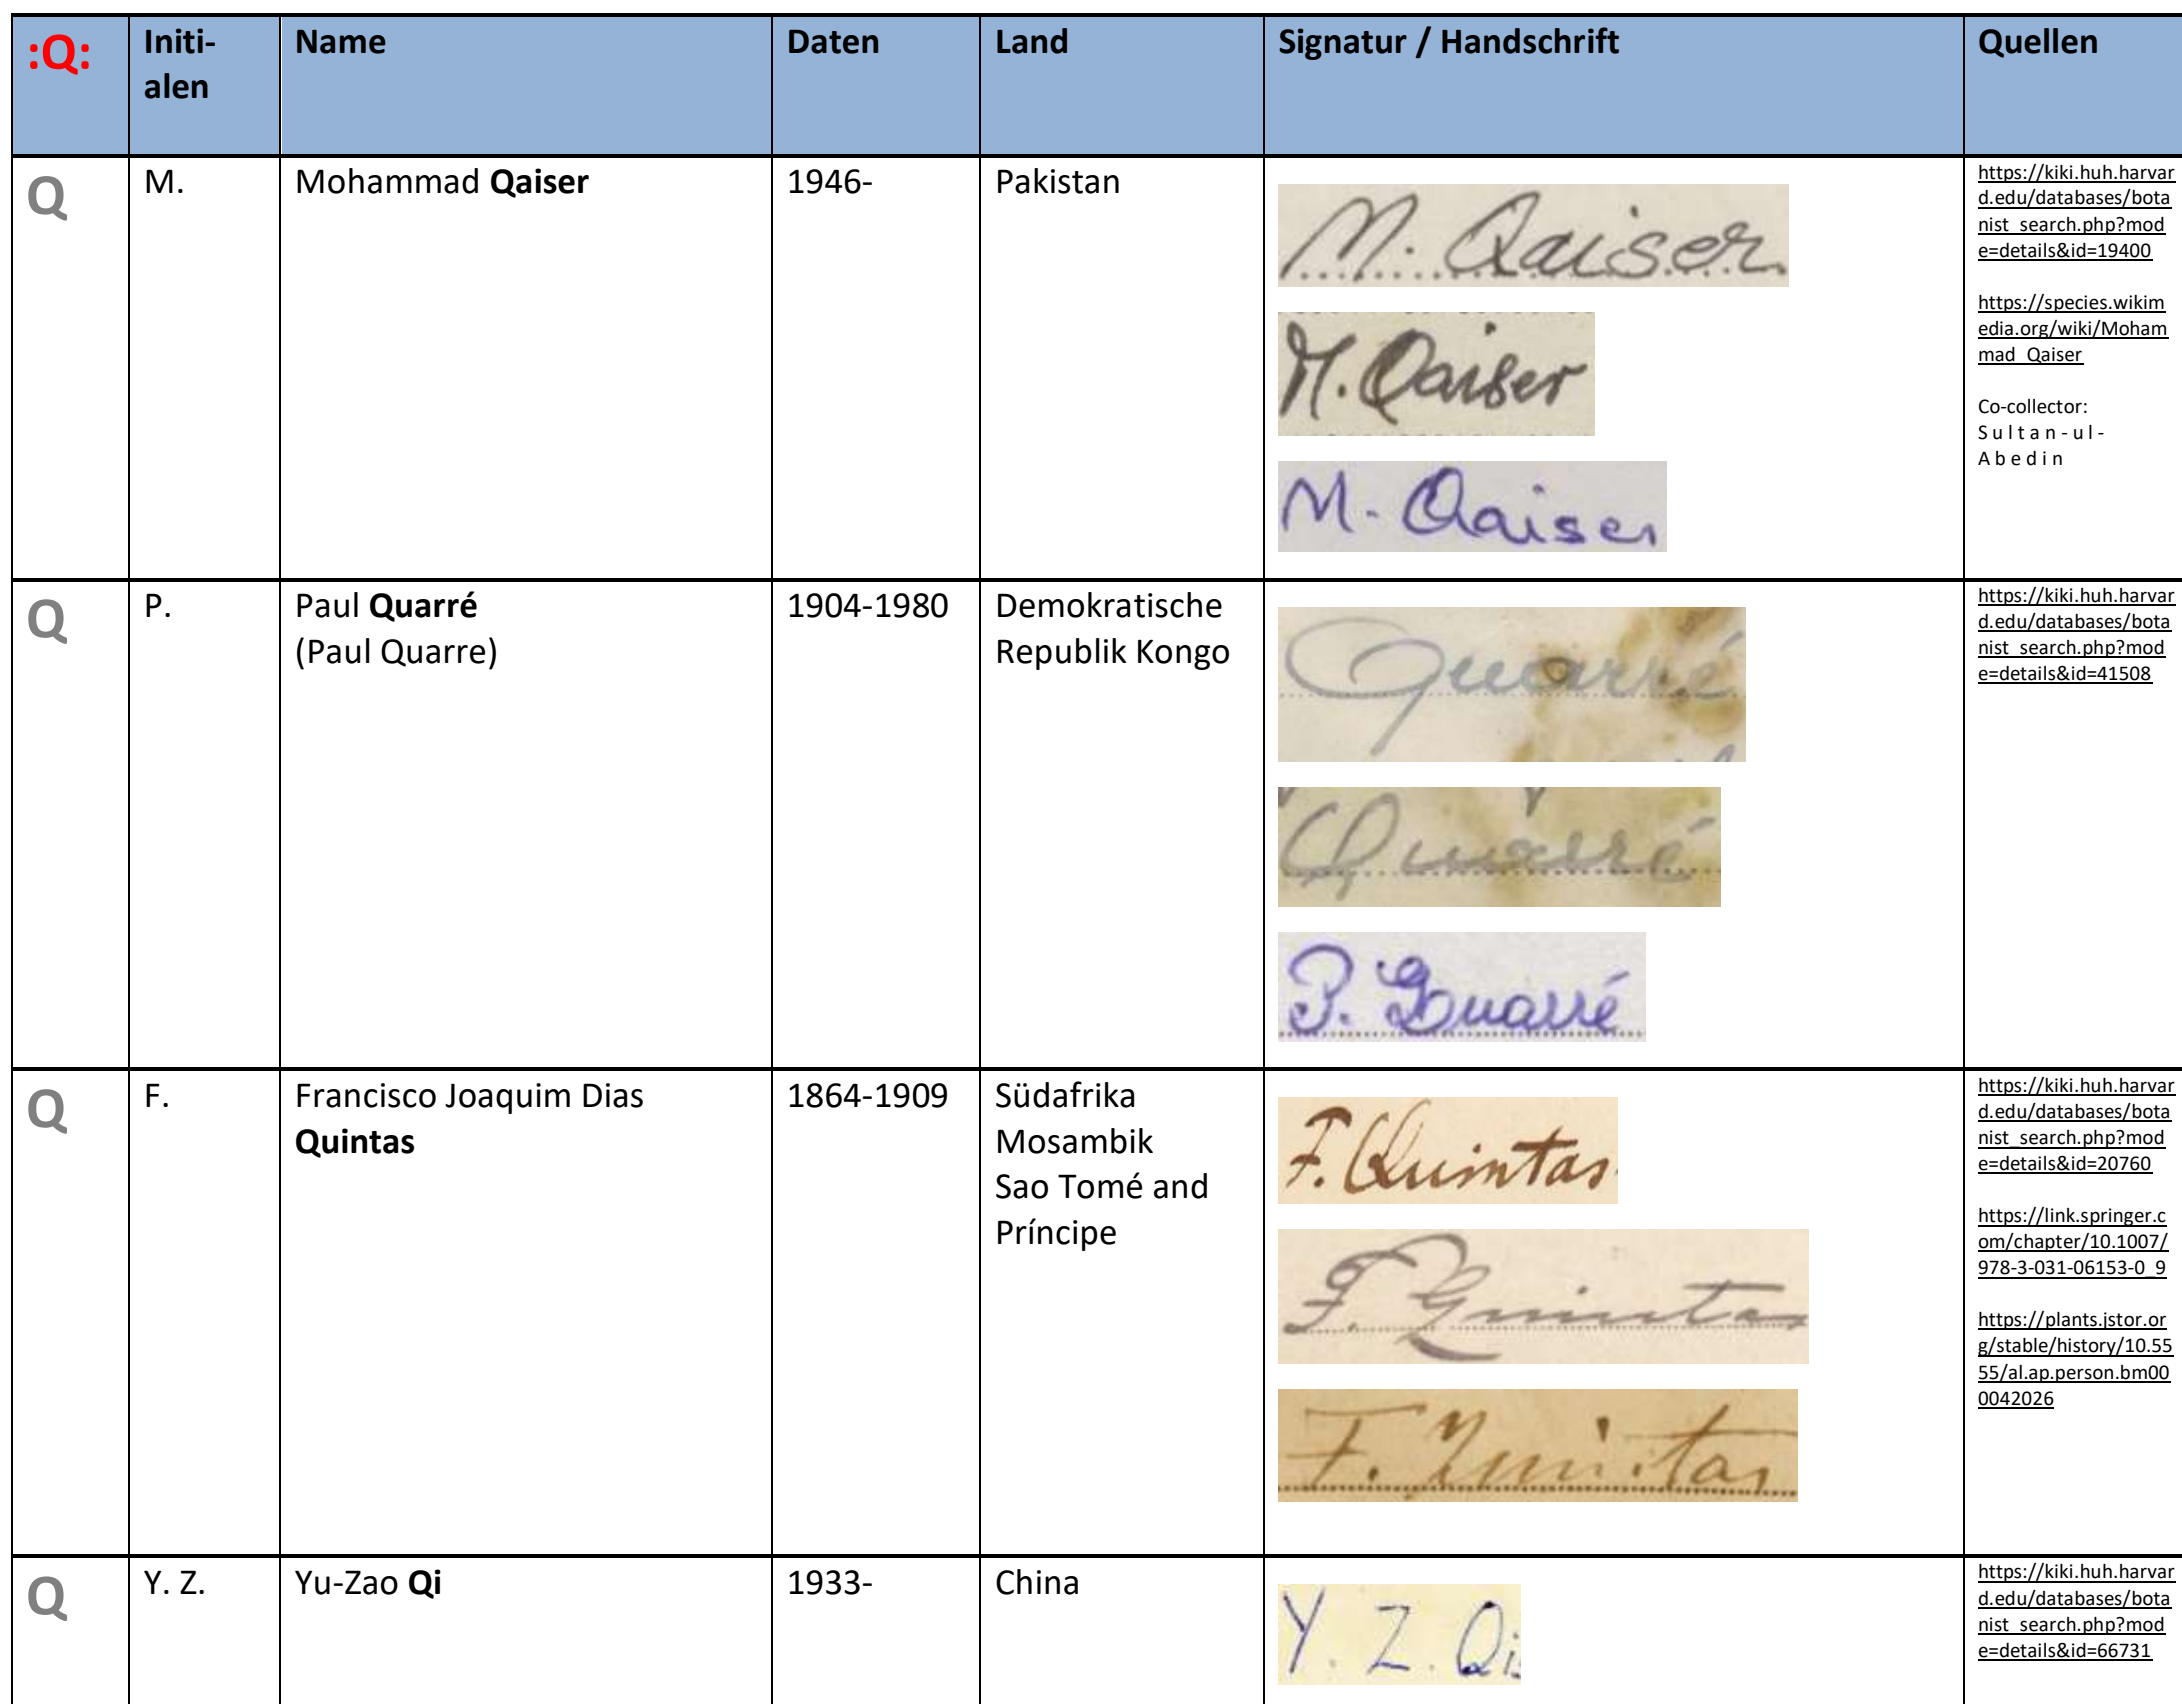 :Q:
Initi-
alen
Name
Daten
Land
Signatur / Handschrift
Quellen
Q
M.
Mohammad Qaiser
1946-
Pakistan
M. Qaiser
M. Qaiser
M. Qaiser
https://kiki.huh.harvar
d.edu/databases/bota
nist_search.php?mod
e=details&id=19400
https://species.wikim
edia.org/wiki/Moham
mad_Qaiser
Co-collector:
S u l t a n - u l -
A b e d i n
Q
P.
Paul Quarré
(Paul Quarre)
1904-1980
Demokratische
Republik Kongo
Quarré
Quarré
P. Quarré
https://kiki.huh.harvar
d.edu/databases/bota
nist_search.php?mod
e=details&id=41508
Q
F.
Francisco Joaquim Dias
Quintas
1864-1909
Südafrika
Mosambik
Sao Tomé and
Príncipe
F. Quintas
F. Quintas
F. Quintas
https://kiki.huh.harvar
d.edu/databases/bota
nist_search.php?mod
e=details&id=20760
https://link.springer.c
om/chapter/10.1007/
978-3-031-06153-0_9
https://plants.jstor.or
g/stable/history/10.55
55/al.ap.person.bm00
0042026
Q
Y. Z.
Yu-Zao Qi
1933-
China
Y. Z. Qi
https://kiki.huh.harvar
d.edu/databases/bota
nist_search.php?mod
e=details&id=66731